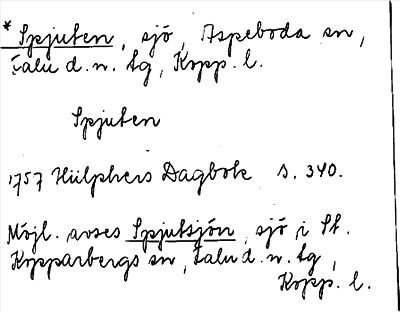 * Spjuten, sjö, Aspeboda sn,
Falu d.n. tg, Kopp. l.
Spjuten
1757 Hülphers Dagbok s. 340.
Möjl. avses Spjutsjön, sjö i St.
Kopparbergs sn, Falu d.n. tg,
Kopp. l.